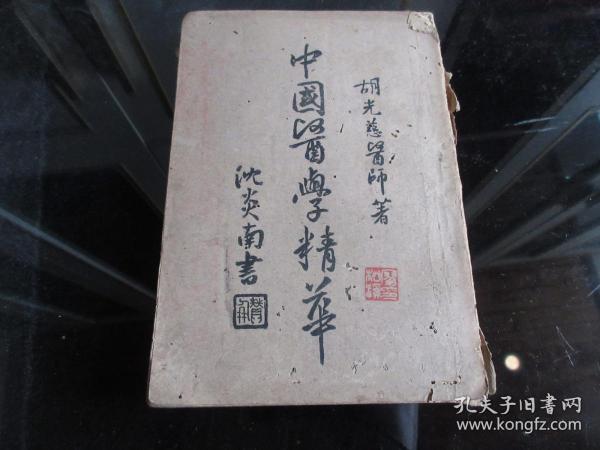 胡光慈醫師著
中國醫學精華
沈炎南書
孔夫子旧書网
www.kongfz.com